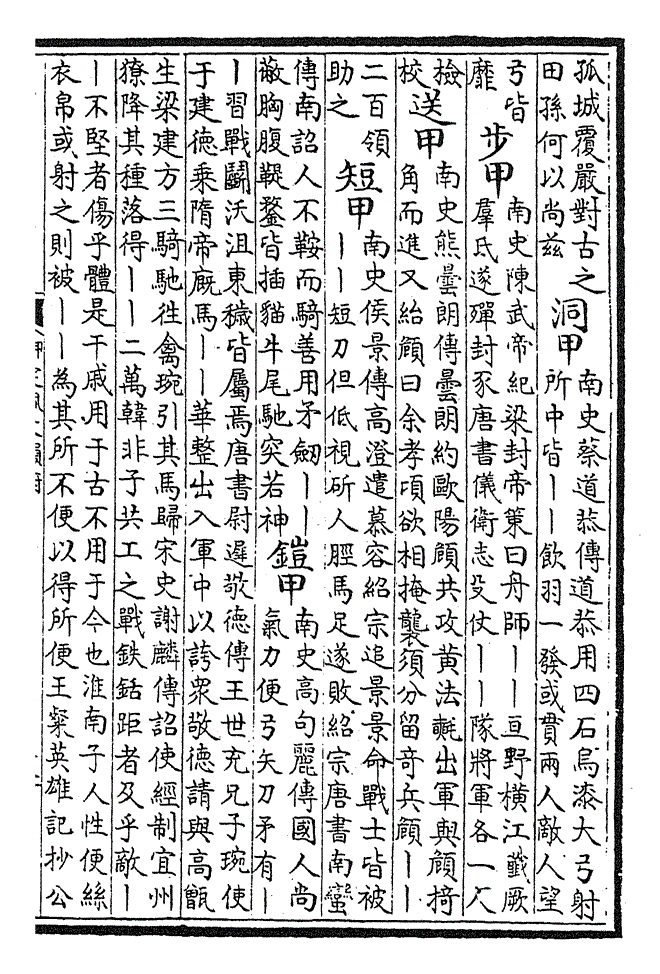 孤城覆嚴對古之
田孫何以尚茲
洞甲
南史蔡道恭傳道恭用四石烏漆大弓射
所中皆丨丨飲羽一發或貫兩人敵人望
弓皆
靡
步甲
南史陳武帝紀梁封帝策曰丹師丨丨亘野橫江殲厥
羣氐遂殫封豕唐書儀衛志殳仗丨丨隊將軍各一人
檢
校
送甲
南史熊曇朗傳曇朗約歐陽頠共攻黃法𣰰出軍與頠掎
角而進又紿頠曰余孝頃欲相掩襲須分留奇兵頠丨丨
二百領
助之
短甲
南史侯景傳高澄遣慕容紹宗追景景命戰士皆被
丨丨短刀但低視斫人脛馬足遂敗紹宗唐書南蠻
傳南詔人不鞍而騎善用矛劒丨丨
蔽胸腹鞮鍪皆插貓牛尾馳突若神
鎧甲
南史高句麗傳國人尚
氣力便弓矢刀矛有丨
丨習戰鬭沃沮東穢皆屬焉唐書尉遲敬德傳王世充兄子琬使
于建德乘隋帝廐馬丨丨華整出入軍中以誇衆敬德請與高甑
生梁建方三騎馳往禽琬引其馬歸宋史謝麟傳詔使經制宜州
獠降其種落得丨丨二萬韓非子共工之戰鉄銛距者及乎敵丨
丨不堅者傷乎體是干戚用于古不用于今也淮南子人性便絲
衣帛或射之則被丨丨為其所不便以得所便王粲英雄記抄公